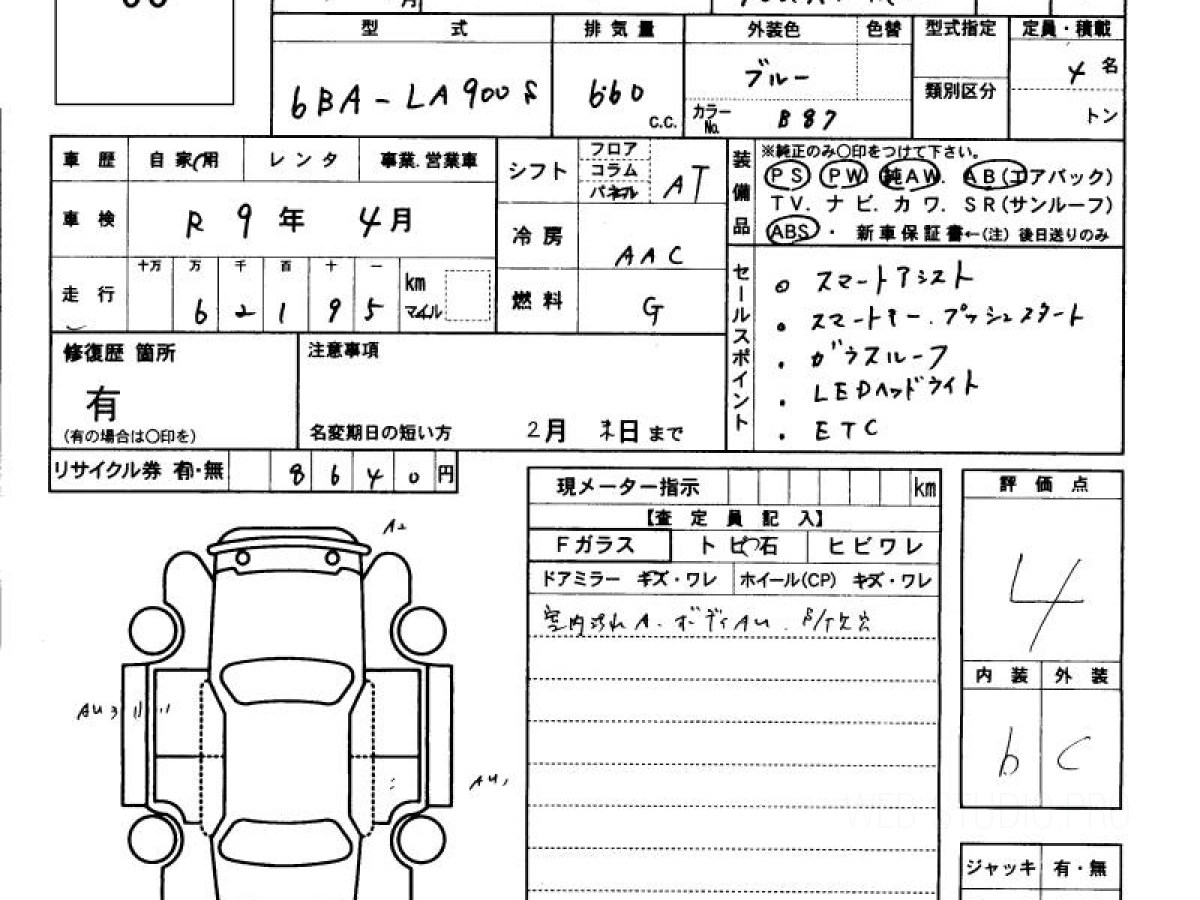 月
型 式 排気量 外装色 色替 型式指定 定員・積載
6BA-LA900S 660 c.c. ブルー 4名
カラーNo. B87 類別区分 トン
車歴 自家用 レンタ 事業.営業車
車検 R9年 4月
走行 十万 万 千 百 十 一 km マイル
6 2 1 9 5
シフト フロア コラム パネル AT
冷房 AAC
燃料 G
装備品 ※純正のみ〇印をつけて下さい。
PS PW. 純AW. AB(エアバック)
TV. ナビ. カワ. SR(サンルーフ)
ABS ・ 新車保証書←(注) 後日送りのみ
セールスポイント
スマートアシスト
スマートキー.プッシュスタート
ガラスルーフ
LEDヘッドライト
ETC
修復歴 箇所
有
(有の場合は〇印を)
注意事項
名変期日の短い方 2月 末日 まで
リサイクル券 有・無 8 6 4 0 円
現メーター指示 km
【査定員記入】
Fガラス トビ石 ヒビワレ
ドアミラー キズ・ワレ ホイール(CP) キズ・ワレ
室内汚れA.ボディAU.
評価点
4
内装 外装
b C
ジャッキ 有・無
AU3
AU,
WEB-STUDIO.PRO